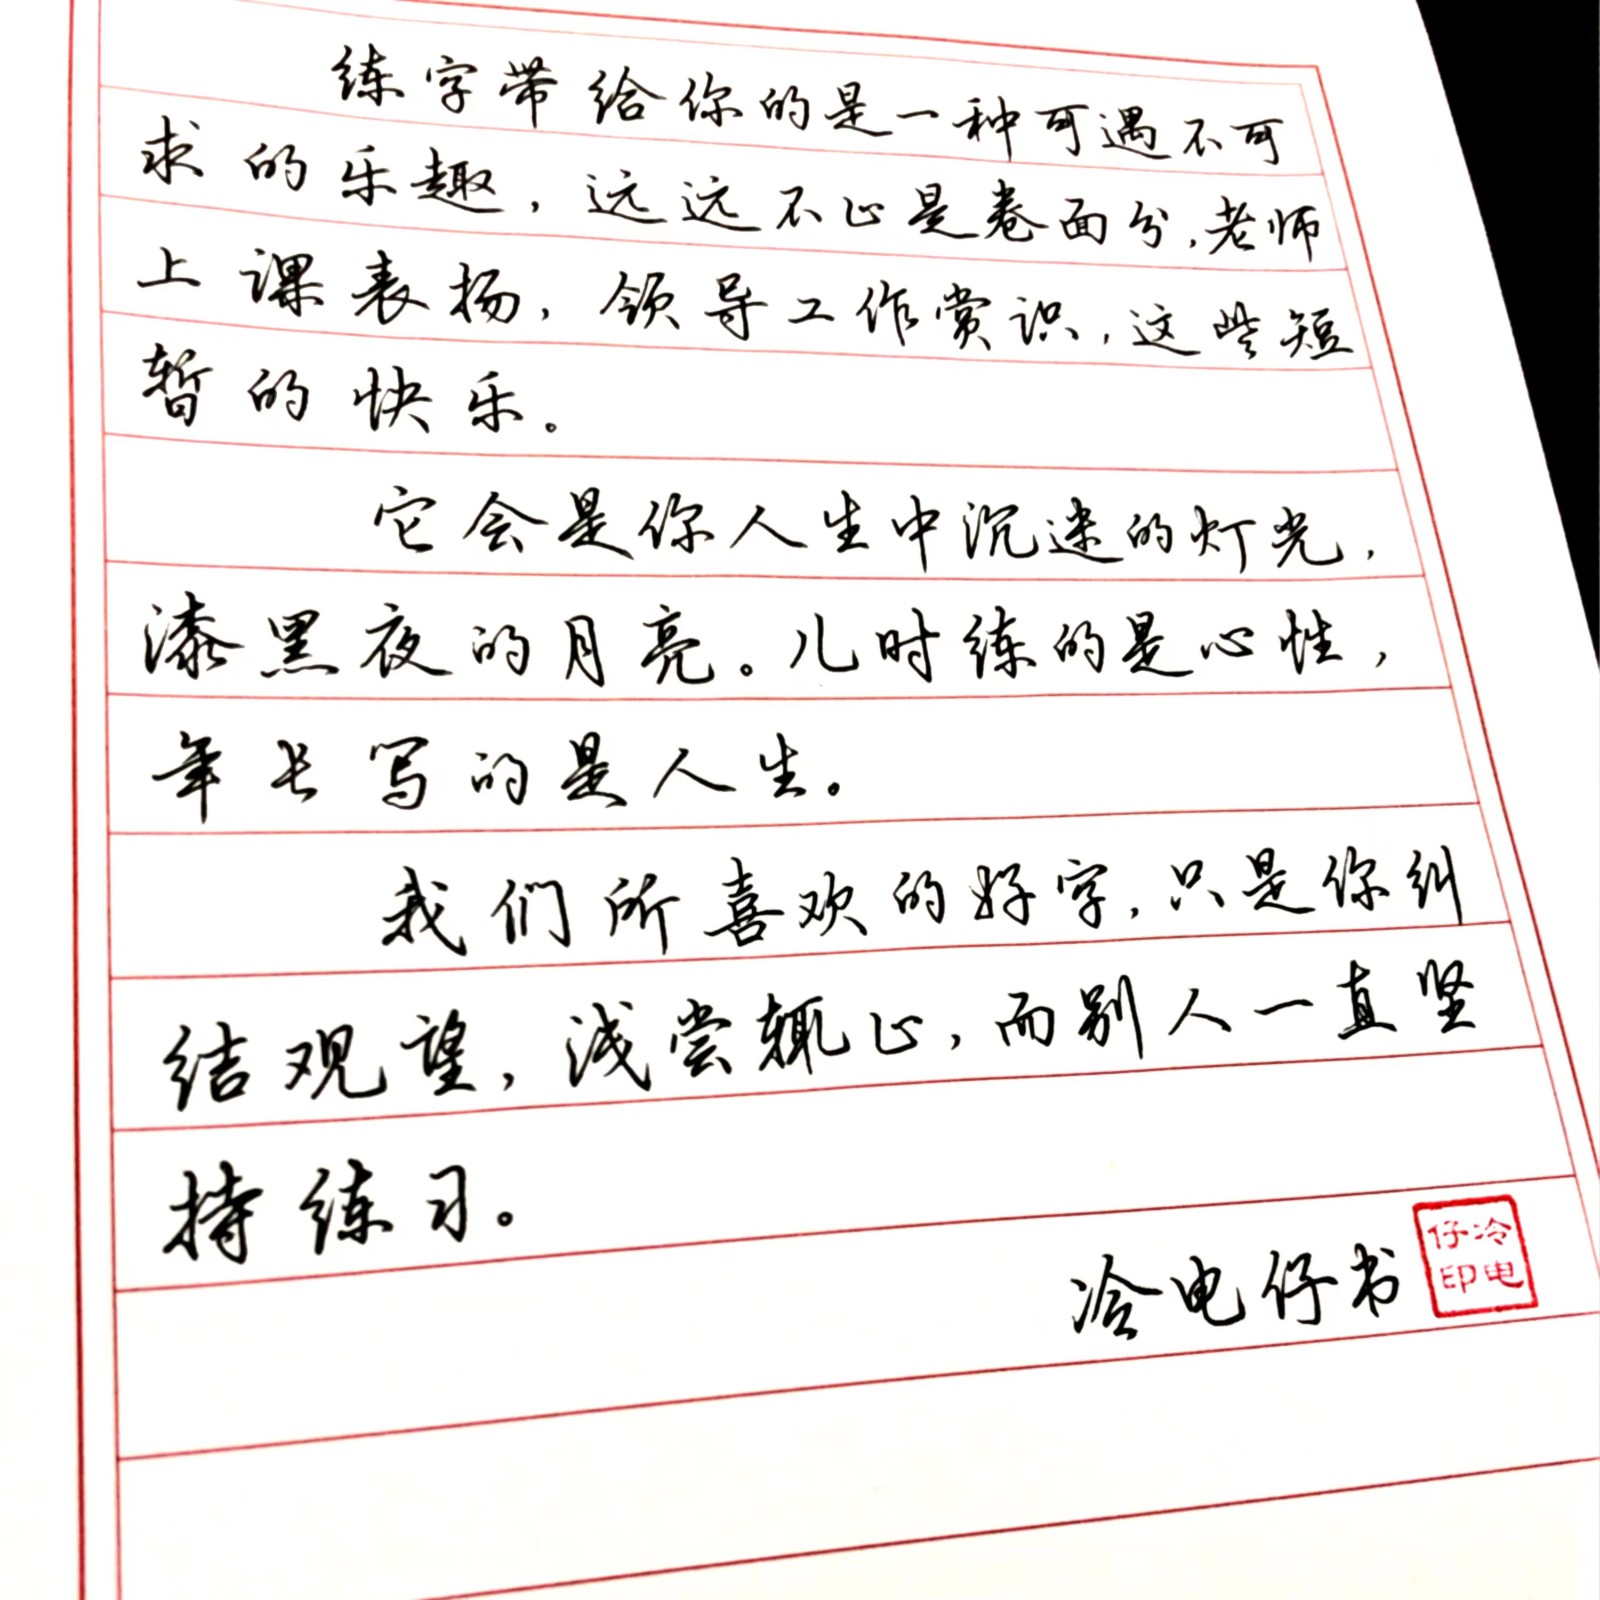 练字带给你的是一种可遇不可
求的乐趣，远远不止是卷面分，老师
上课表扬，领导工作赏识，这些短
暂的快乐。
它会是你人生中沉迷的灯光，
漆黑夜的月亮。儿时练的是心性，
年长写的是人生。
我们所喜欢的好字，只是你纠
结观望，浅尝辄止，而别人一直坚
持练习。
冷电仔书
冷电
仔印